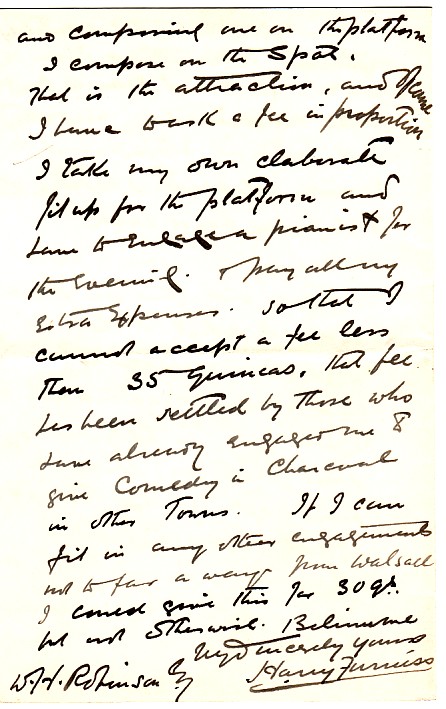 and composing one on the platform
I compose on the Spot.
That is the attraction, and of course
I have to ask a fee in proportion
I take my own elaborate
fit up for the platform and
have to engage a pianist for
the Evening. & pay all my
Extra Expenses. so that I
cannot accept a fee less
than 35 Guineas. that fee
has been settled by those who
have already engaged me to
give Comedy in Charcoal
in other Towns. If I can
fit in any other engagements
not to far a way from Walsall
I could give this for 30 gs.
but not otherwise. Believe me
Yrs Sincerely yours
Harry Furniss
W. H. Robinson Esq